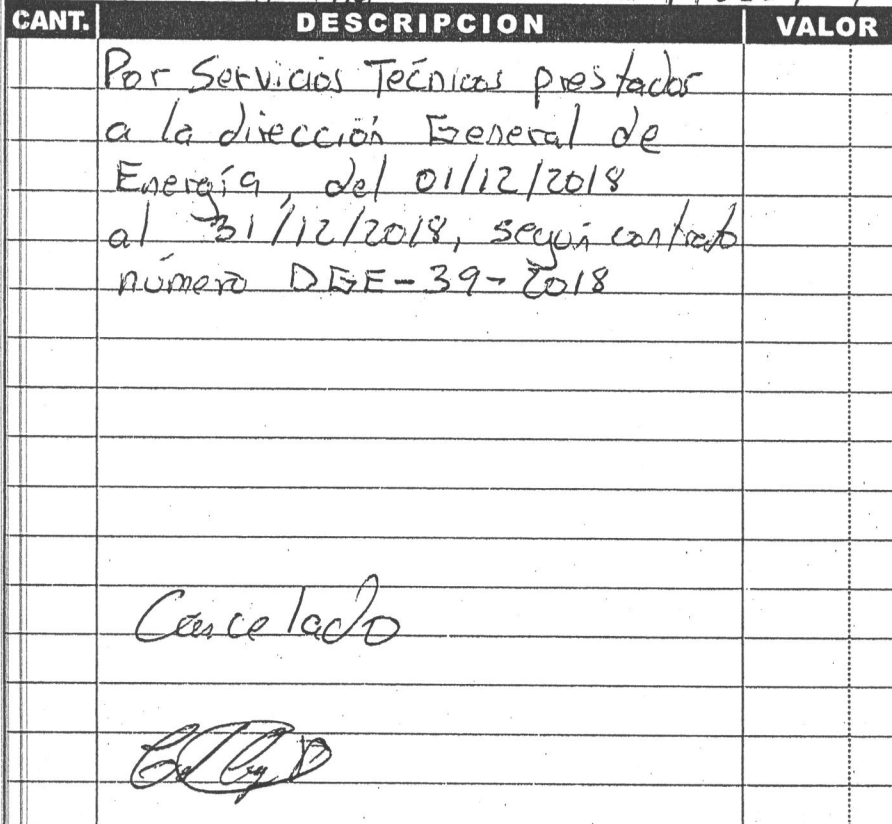 CANT. DESCRIPCION VALOR
Por Servicios Técnicos prestados
a la dirección General de
Energía, del 01/12/2018
al 31/12/2018, según contrato
número DGE-39-2018
Cancelado